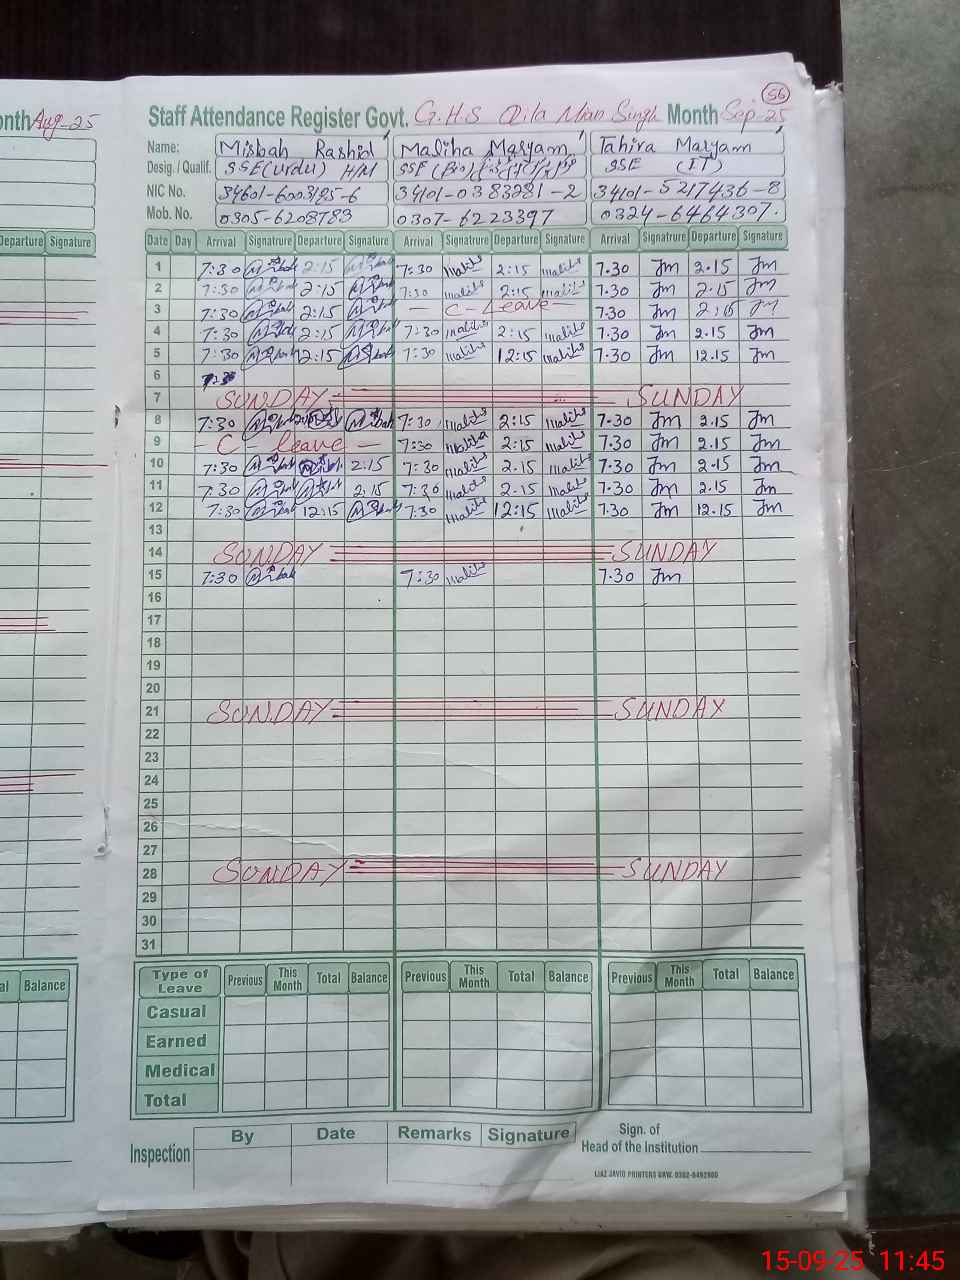 onth Aug-25
Departure Signature
al Balance
56
Staff Attendance Register Govt. G.H.S Qila Mian Singh Month Sep-25
Name: Misbah Rashid Madiha Maryam Tahira Maryam
Desig. / Qualif. SSE(Urdu) H/M SSE (Bio) SSE (IT)
NIC No. 34101-5217436-8
Mob. No. 0305-6208783 0307-6223397 0324-6464307.
Date Day Arrival Signatrure Departure Signature Arrival Signatrure Departure Signature Arrival Signatrure Departure Signature
1 7:30 2:15 7:30 2:15 7.30 Jm 2.15 Jm
2 7:30 2:15 7:30 2:15 7.30 Jm 2.15 Jm
3 7:30 2:15 - C - Leave - 7.30 Jm 2:15 Jm
4 7:30 2:15 7:30 2:15 7.30 Jm 2.15 Jm
5 7:30 12:15 7:30 12:15 7.30 Jm 12.15 Jm
6 7:30
7 SUNDAY SUNDAY
8 7:30 7:30 2:15 7.30 Jm 2.15 Jm
9 - C - leave - 7:30 2:15 7.30 Jm 2.15 Jm
10 7:30 2:15 7:30 2.15 7.30 Jm 2.15 Jm
11 7:30 2:15 7:30 2.15 7.30 Jm 2.15 Jm
12 7:30 12:15 7:30 12:15 7.30 Jm 12.15 Jm
13
14 SUNDAY SUNDAY
15 7:30 7:30 7.30 Jm
16
17
18
19
20
21 SUNDAY SUNDAY
22
23
24
25
26
27
28 SUNDAY SUNDAY
29
30
31
Type of Leave Previous This Month Total Balance Previous This Month Total Balance Previous This Month Total Balance
Casual
Earned
Medical
Total
Inspection By Date Remarks Signature Sign. of Head of the Institution
LIAZ JAVID PRINTERS GRW. 0302-6492900
15-09-25 11:45